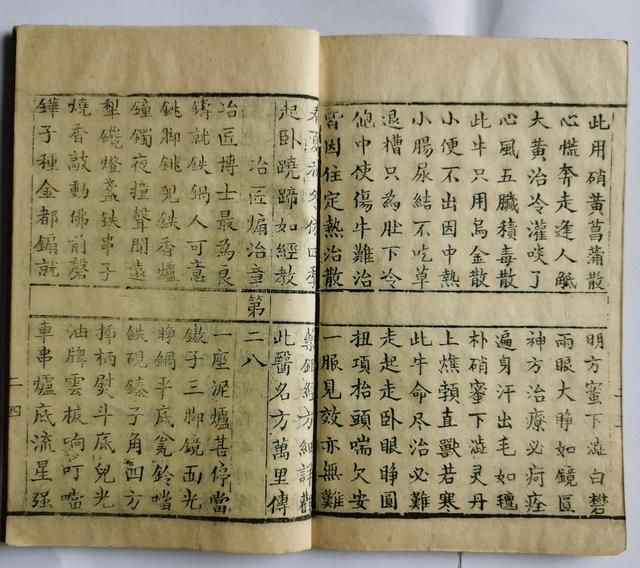 此用硝黄菖蒲散 明方蜜下澁白礬
心慌奔走逢人觝 兩眼大睁如鏡圓
大黄治冷灌啖了 神方治療必疴痊
心風五臟積毒散 遍身汗出毛如氊
此牛只用烏金散 朴硝蜜下澁灵丹
小便不出因中熱 上燋顡直獸若寒
小腸尿結不吃草 此牛命尽治必難
退槽只為肚下冷 走起走卧眼睁圓
他中使傷牛難治 扭項抬頭喘欠安
皆因住定熱治散 一服見效亦無難
春夏秋冬依四季 經方細詳觀
起卧蹺蹄如經教 此醫名方萬里傳
冶匠煸治童 第二八
冶匠博士最為良 一座泥爐甚停當
鑄就鉄鍋人可意 鏊子三脚鏡面光
銚脚銚兒鉄香爐 睁鍋平底瓮鈴噹
鐘鐲夜撞聲聞遠 鉄硯子角四方
犁鑱燈盞鉄串子 揷柄熨斗底兒光
燒香敲動佛前磬 油牌雲板响叮噹
鏵子種金都就 車串爐底流星强
二四